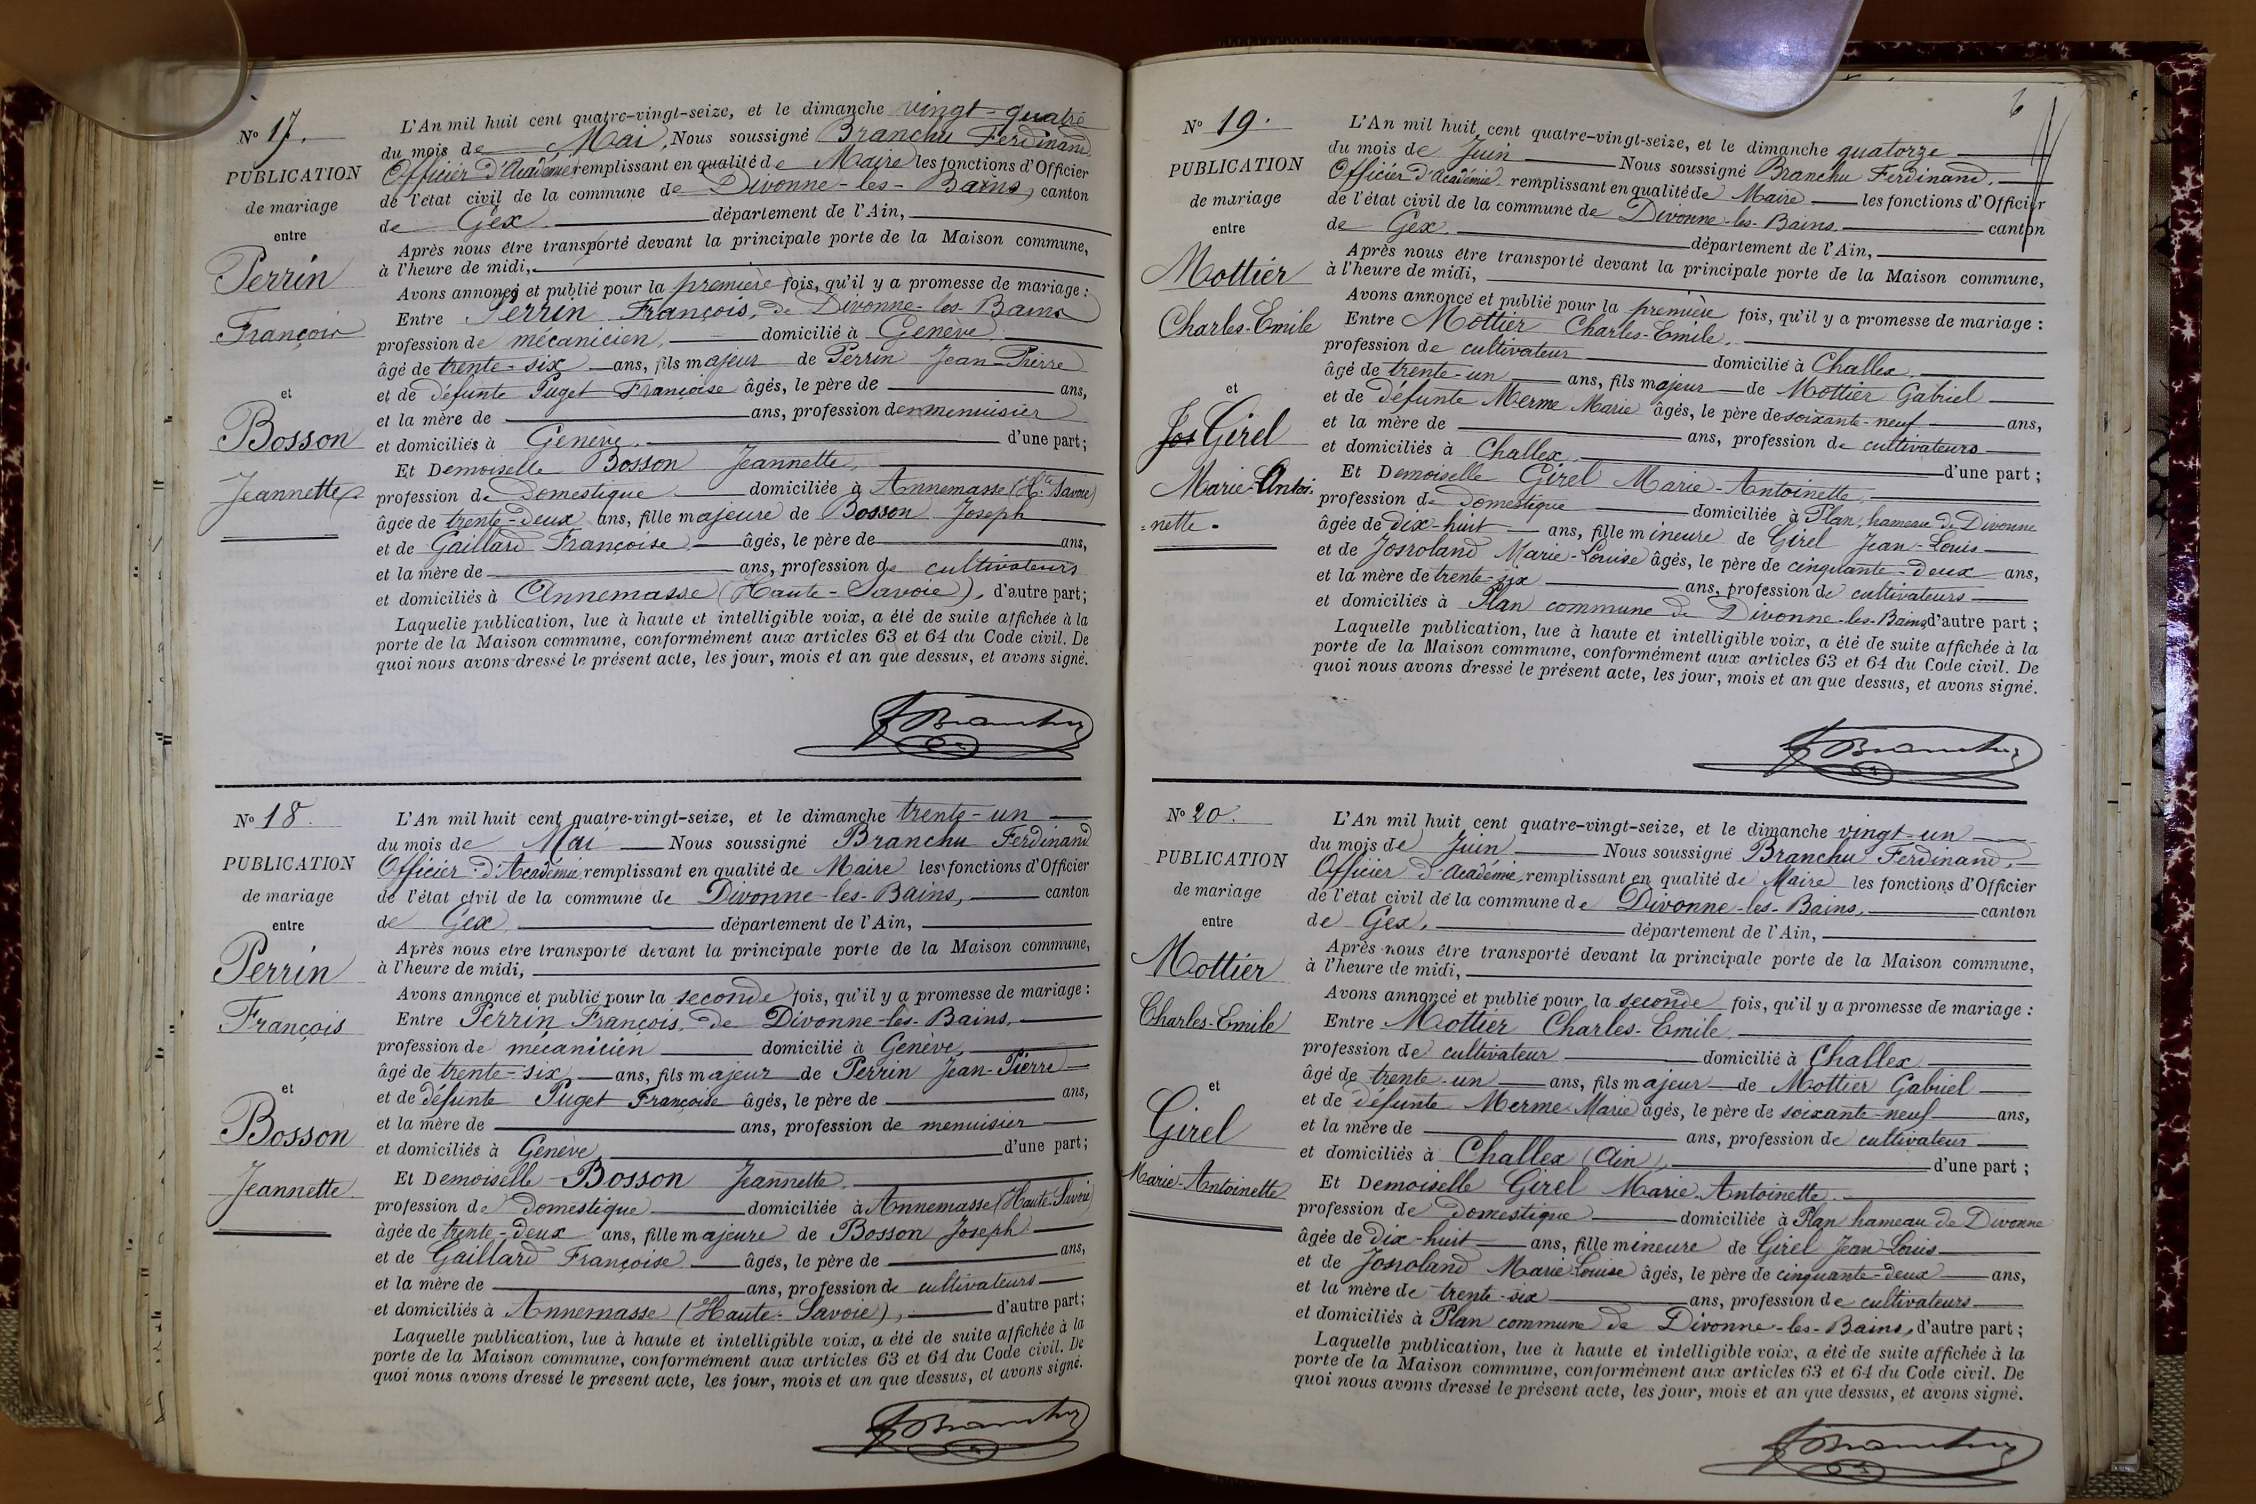 N° 17.
PUBLICATION
de mariage
entre
Perrin
François
et
Bosson
Jeannette
L'An mil huit cent quatre-vingt-seize, et le dimanche vingt-quatre
du mois de Mai, Nous soussigné Branchu Ferdinand
Officier d'Académie remplissant en qualité de Maire les fonctions d'Officier
de l'état civil de la commune de Divonne-les-Bains, canton
de Gex département de l'Ain,
Après nous être transporté devant la principale porte de la Maison commune,
à l'heure de midi,
Avons annoncé et publié pour la première fois, qu'il y a promesse de mariage :
Entre Perrin François, de Divonne-les-Bains
profession de mécanicien, domicilié à Genève
âgé de trente-six ans, fils majeur de Perrin Jean-Pierre
et de défunte Puget Françoise âgés, le père de ans,
et la mère de ans, profession de menuisier
et domiciliés à Genève, d'une part;
Et Demoiselle Bosson Jeannette,
profession de Domestique domiciliée à Annemasse (Hte Savoie)
âgée de trente-deux ans, fille majeure de Bosson Joseph
et de Gaillard Françoise âgés, le père de ans,
et la mère de ans, profession de cultivateurs
et domiciliés à Annemasse (Haute-Savoie), d'autre part;
Laquelle publication, lue à haute et intelligible voix, a été de suite affichée à la
porte de la Maison commune, conformément aux articles 63 et 64 du Code civil. De
quoi nous avons dressé le présent acte, les jour, mois et an que dessus, et avons signé.
F Branchu
N° 18.
PUBLICATION
de mariage
entre
Perrin
François
et
Bosson
Jeannette
L'An mil huit cent quatre-vingt-seize, et le dimanche trente-un
du mois de Mai Nous soussigné Branchu Ferdinand
Officier d'Académie remplissant en qualité de Maire les fonctions d'Officier
de l'état civil de la commune de Divonne-les-Bains, canton
de Gex département de l'Ain,
Après nous etre transporté devant la principale porte de la Maison commune,
à l'heure de midi,
Avons annoncé et publié pour la seconde fois, qu'il y a promesse de mariage :
Entre Perrin François, de Divonne-les-Bains,
profession de mécanicien domicilié à Genève,
âgé de trente-six ans, fils majeur de Perrin Jean-Pierre
et de défunte Puget Françoise âgés, le père de ans,
et la mère de ans, profession de menuisier
et domiciliés à Genève d'une part;
Et Demoiselle Bosson Jeannette
profession de Domestique domiciliée à Annemasse (Haute-Savoie)
âgée de trente-deux ans, fille majeure de Bosson Joseph
et de Gaillard Françoise âgés, le père de ans,
et la mère de ans, profession de cultivateurs
et domiciliés à Annemasse (Haute-Savoie), d'autre part;
Laquelle publication, lue à haute et intelligible voix, a été de suite affichée à la
porte de la Maison commune, conformément aux articles 63 et 64 du Code civil. De
quoi nous avons dressé le présent acte, les jour, mois et an que dessus, et avons signé.
F Branchu
6
N° 19.
PUBLICATION
de mariage
entre
Mottier
Charles-Emile
et
Jos Girel
Marie-Antoi-
=nette.
L'An mil huit cent quatre-vingt-seize, et le dimanche quatorze
du mois de Juin Nous soussigné Branchu Ferdinand,
Officier d'Académie remplissant en qualité de Maire les fonctions d'Officier
de l'état civil de la commune de Divonne-les-Bains, canton
de Gex département de l'Ain,
Après nous être transporté devant la principale porte de la Maison commune,
à l'heure de midi,
Avons annoncé et publié pour la première fois, qu'il y a promesse de mariage :
Entre Mottier Charles-Emile,
profession de cultivateur domicilié à Challex
âgé de trente-un ans, fils majeur de Mottier Gabriel
et de défunte Merme Marie âgés, le père de soixante-neuf ans,
et la mère de ans, profession de cultivateurs
et domiciliés à Challex, d'une part ;
Et Demoiselle Girel Marie-Antoinette,
profession de Domestique domiciliée à Plan, hameau de Divonne
âgée de dix-huit ans, fille mineure de Girel Jean-Louis
et de Josroland Marie-Louise âgés, le père de cinquante-deux ans,
et la mère de trente-six ans, profession de cultivateurs
et domiciliés à Plan commune de Divonne-les-Bains d'autre part ;
Laquelle publication, lue à haute et intelligible voix, a été de suite affichée à la
porte de la Maison commune, conformément aux articles 63 et 64 du Code civil. De
quoi nous avons dressé le présent acte, les jour, mois et an que dessus, et avons signé.
F Branchu
N° 20.
PUBLICATION
de mariage
entre
Mottier
Charles-Emile
et
Girel
Marie-Antoinette
L'An mil huit cent quatre-vingt-seize, et le dimanche vingt-un
du mois de Juin Nous soussigné Branchu Ferdinand,
Officier d'Académie, remplissant en qualité de Maire les fonctions d'Officier
de l'état civil de la commune de Divonne-les-Bains, canton
de Gex, département de l'Ain,
Après nous être transporté devant la principale porte de la Maison commune,
à l'heure de midi,
Avons annoncé et publié pour la seconde fois, qu'il y a promesse de mariage :
Entre Mottier Charles-Emile
profession de cultivateur domicilié à Challex
âgé de trente-un ans, fils majeur de Mottier Gabriel
et de défunte Merme Marie âgés, le père de soixante-neuf ans,
et la mère de ans, profession de cultivateur
et domiciliés à Challex (Ain), d'une part ;
Et Demoiselle Girel Marie-Antoinette
profession de domestique domiciliée à Plan hameau de Divonne
âgée de dix-huit ans, fille mineure de Girel Jean-Louis
et de Josroland Marie-Louise âgés, le père de cinquante-deux ans,
et la mère de trente-six ans, profession de cultivateurs
et domiciliés à Plan commune de Divonne-les-Bains, d'autre part ;
Laquelle publication, lue à haute et intelligible voix, a été de suite affichée à la
porte de la Maison commune, conformément aux articles 63 et 64 du Code civil. De
quoi nous avons dressé le présent acte, les jour, mois et an que dessus, et avons signé.
F Branchu